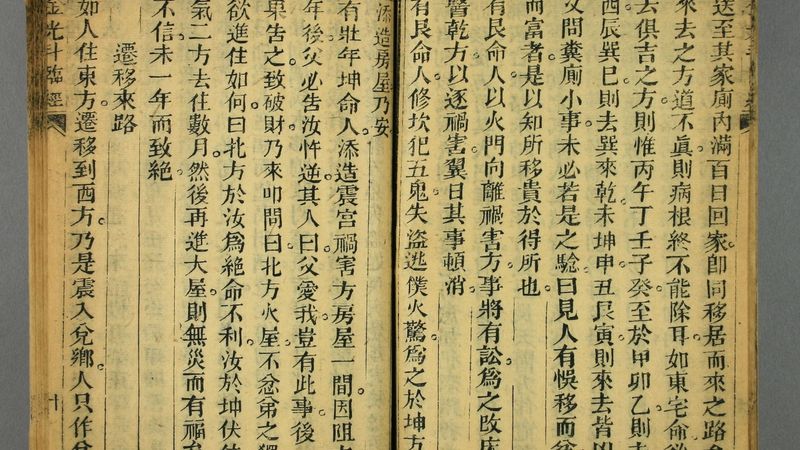 送至其家廟內滿百日回家卽同移居而來之路
來去之方道不眞則病根終不能除耳如東宅命
去俱吉之方則惟丙午丁壬子癸至於甲卯乙則去
酉辰巽巳則去巽來乾未坤申丑艮寅則來去皆凶
父問糞廁小事未必若是之驗曰見人有悞移而
而富者是以知所移貴於得所也
有艮命人以火門向離禍害方事將有訟爲之改床
嘗乾方以逐禍害翼日其事頓消
有艮命人修坎犯五鬼失盜逃僕火驚爲之於坤方
添造房屋乃安
有壯年坤命人添造震宮禍害方房屋一間因阻
年後父必告汝忤逆其人曰父愛我豈有此事後
果告之致破財乃來叩問曰北方火屋不忿弟之
欲進住如何曰北方於汝爲絕命不利汝於坤伏
氣二方去住數月然後再進大屋則無災而有福
不信未一年而致絕
遷移來路
如人住東方遷移到西方乃是震入兌鄉人只作
金光斗臨經
十